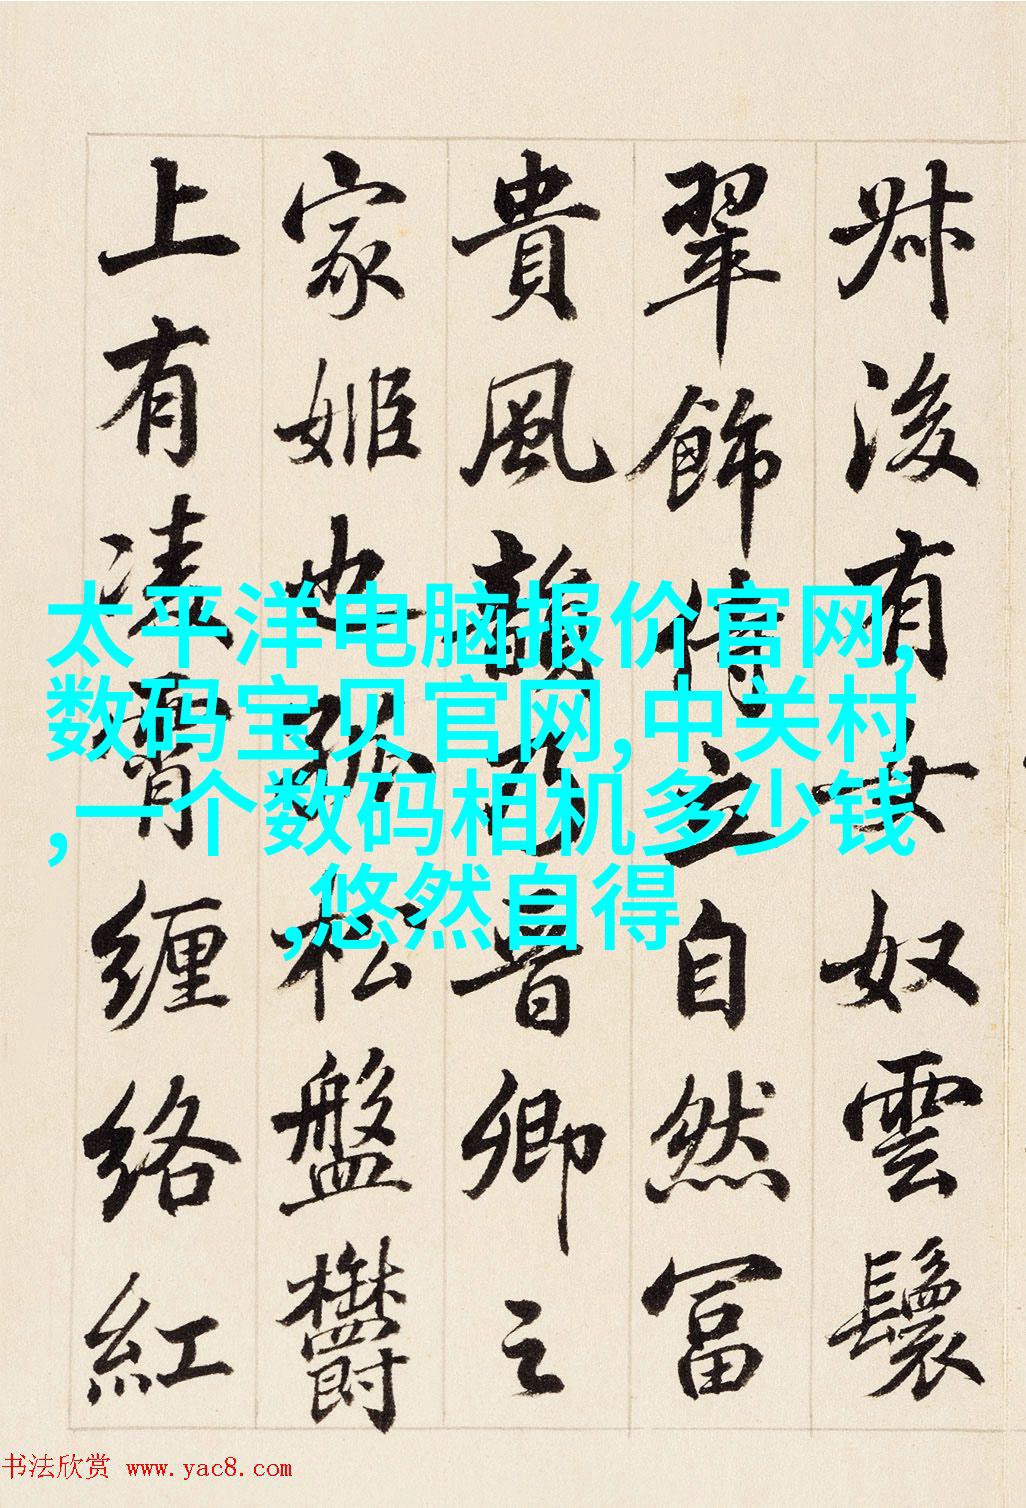 叔後有女奴雲鬟
翠飾侍立自然富
貴風韻乃晉卿之
家姬也孤松盤欝
上有凌霄纏絡紅
太平洋电脑报价官网,
数码宝贝官网,中关村
,一个数码相机多少钱
,悠然自得
书法欣赏 www.yac8.com